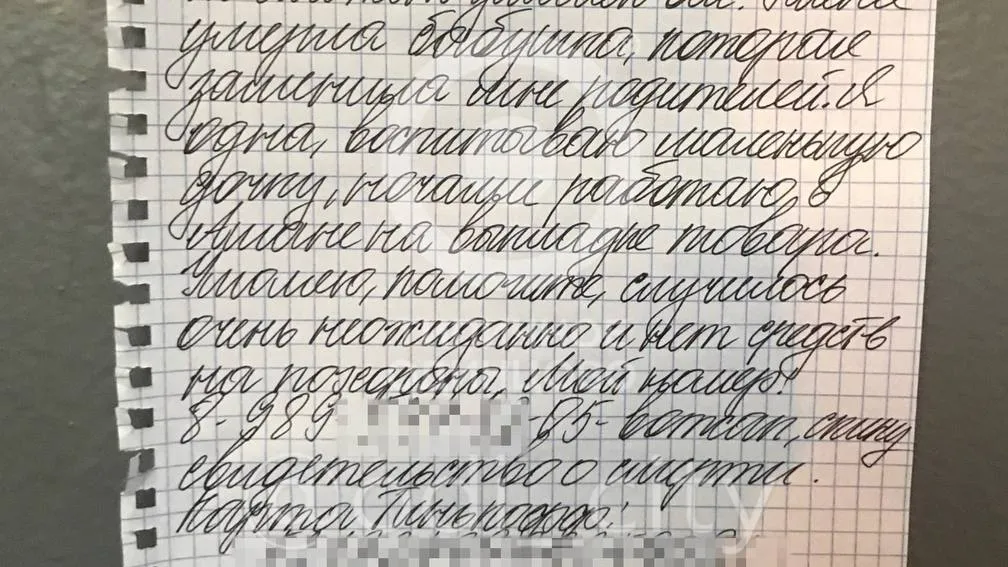 умерла бабушка, которая
заменила мне родителей. Я
одна, воспитоваю маленькую
дочку, ночами работаю в
на выкладке товара.
Умоляю, помогите, случилось
очень неожиданно и нет средств
на похороны, Мой номер:
8-989 -05- ватсап, скину
свидетельство о смерти.
Карта Тинькофф: